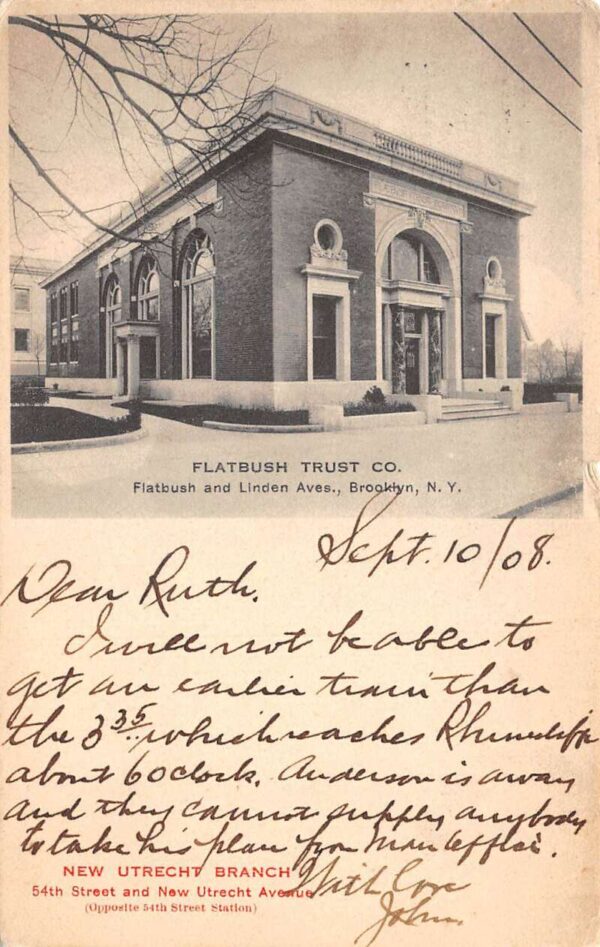 FLATBUSH TRUST CO.
Flatbush and Linden Aves., Brooklyn, N. Y.
Sept. 10/08.
Dear Ruth.
I will not be able to
get an earlier train than
the 3 35 which reaches Rhinecliff
about 6 oclock. Anderson is away
and they cannot supply anybody
to take his place from Main Office.
With Love
John
NEW UTRECHT BRANCH
54th Street and New Utrecht Avenue
(Opposite 54th Street Station)